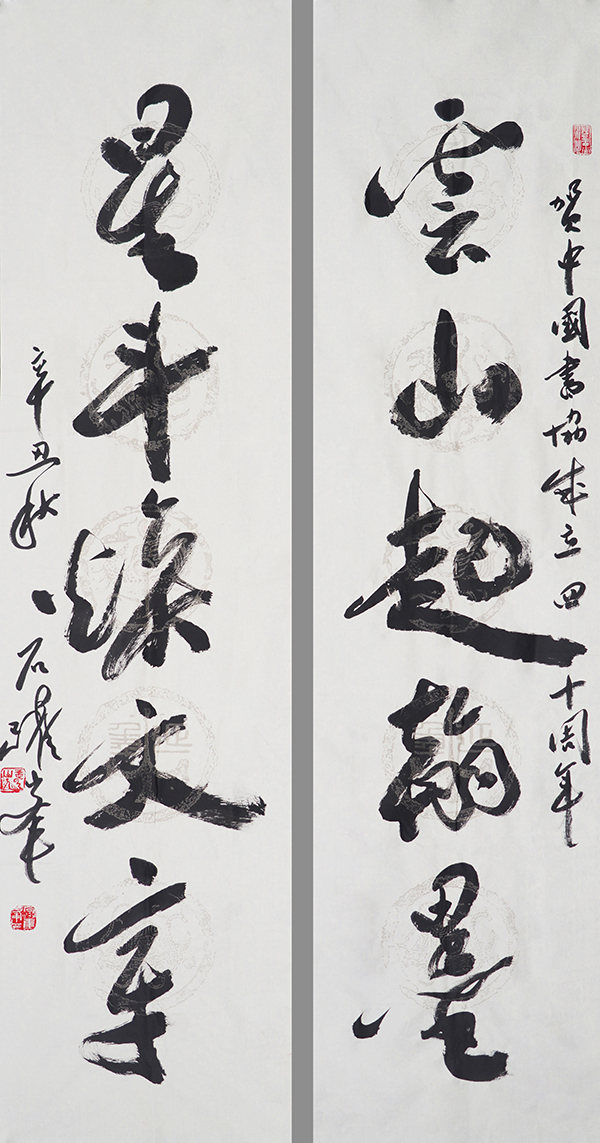 贺中國書協成立四十周年
雲山起翰墨
星斗燦文章
辛丑秋 石躍峯